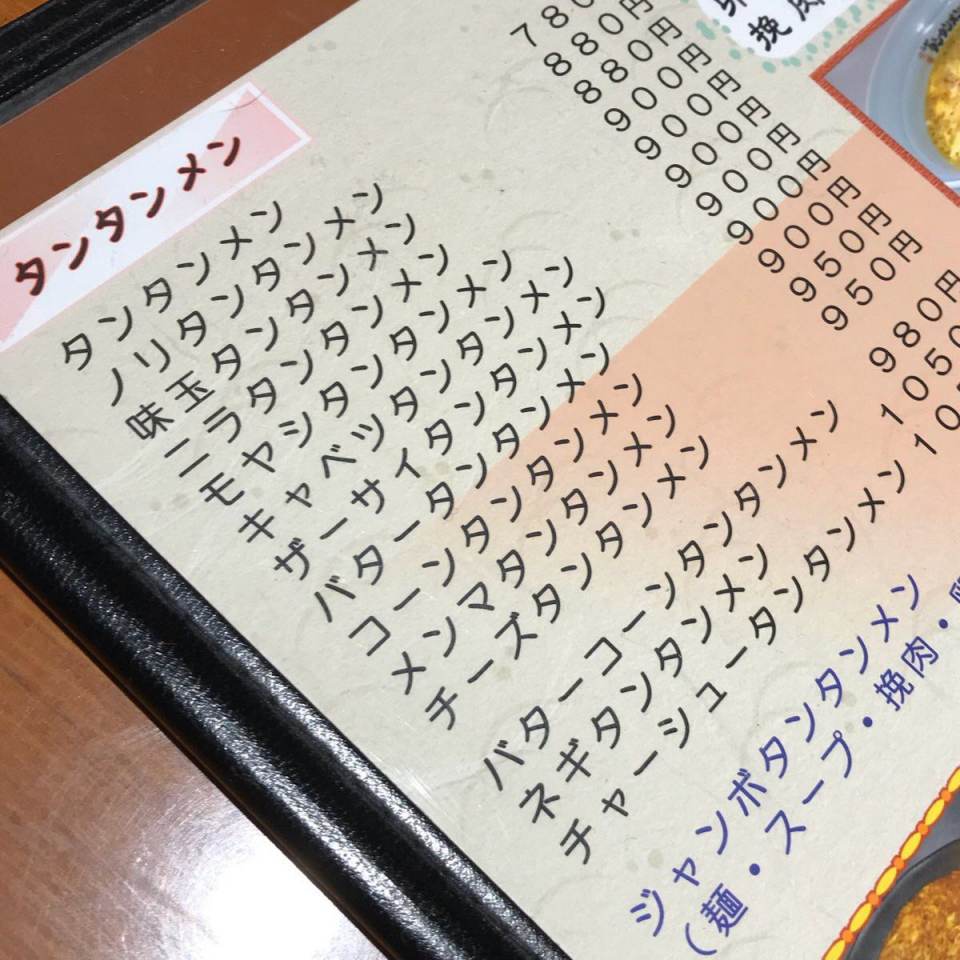 挽肉
タンタンメン
タンタンメン 780
ノリタンタンメン 880円
味玉タンタンメン 880円
ニラタンタンメン 900円
モヤシタンタンメン 900円
キャベツタンタンメン 900円
ザーサイタンタンメン 900円
バタータンタンメン 900円
コーンタンタンメン 900円
メンマタンタンメン 950円
チーズタンタンメン 950円
バターコーンタンタンメン 980円
ネギタンタンメン 1050
チャーシュータンタンメン 10
ジャンボタンタンメン
(麺・スープ・挽肉・